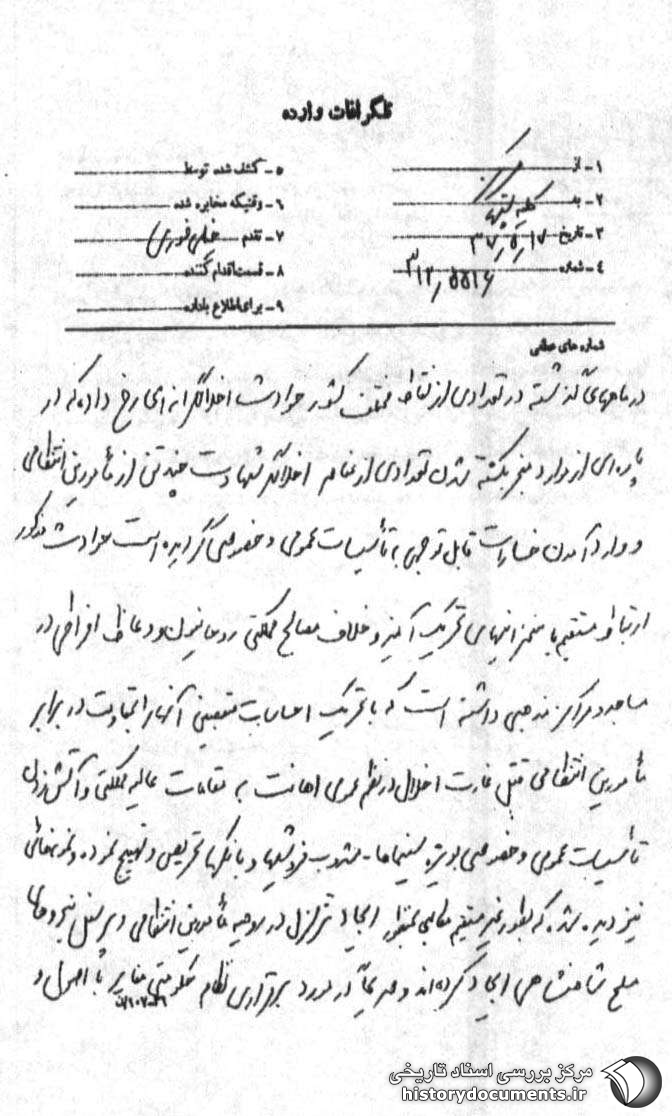 تلگرافات وارده
۱- از
۲- به کلیه
۳- تاریخ ۳۷/۵/۱۷
۴- شماره ۳۱۲/۵۵۱۶
۵- کشف شده توسط
۶- وقتیکه مخابره شده
۷- تقدم خیلی فوری
۸- قسمت اقدام کننده
۹- برای اطلاع باداره
شماره های عطفی
در ماههای گذشته در تعدادی از نقاط مختلف کشور حوادث اخلالگرانه ای رخ داده که در
پاره ای از موارد منجر بکشته شدن تعدادی از عناصر اخلالگر شهادت چند تن از مأمورین انتظامی
و وارد آمدن خسارات قابل توجهی به تأسیسات عمومی و خصوصی گردیده است حوادث مذکور
ارتباط مستقیم با سخنرانیهای تحریک آمیز و خلاف مصالح مملکتی روحانیون و وعاظ افراطی در
مساجد و مراکز مذهبی داشته است که با تحریک احساسات متعصبین آنها را بمقاومت در برابر
مأمورین انتظامی قتل غارت اخلال در نظم عمومی اهانت به مقامات عالیه مملکتی و آتش زدن
تأسیسات عمومی و خصوصی بویژه سینماها - مشروب فروشیها و بانکها تحریص و تهییج نموده و
نیز دیده شده که بطور غیر مستقیم مطالبی بمنظور ایجاد تزلزل در روحیه مأمورین انتظامی و پرسنل نیروهای
مسلح شاهنشاهی ایجاد کرده اند و صریحاً در مورد برقراری نظام حکومتی مغایر با اصول و
مرکز بررسی اسناد تاریخی
historydocuments.ir